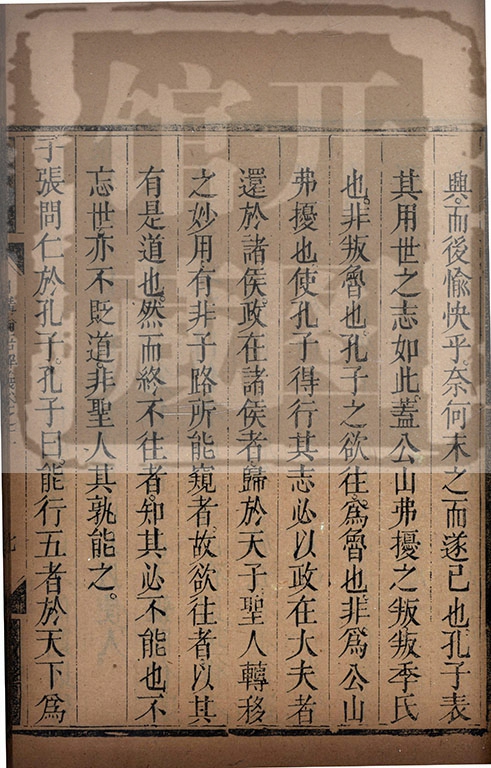 興而後愉快乎奈何末之而遂已也孔子表
其用世之志如此蓋公山弗擾之叛叛季氏
也非叛魯也孔子之欲往為魯也非為公山
弗擾也使孔子得行其志必以政在大夫者
還於諸侯政在諸侯者歸於天子聖人轉移
之妙用有非子路所能窺者故欲往者以其
有是道也然而終不往者知其必不能也不
忘世亦不貶道非聖人其孰能之。
子張問仁於孔子孔子曰能行五者於天下為